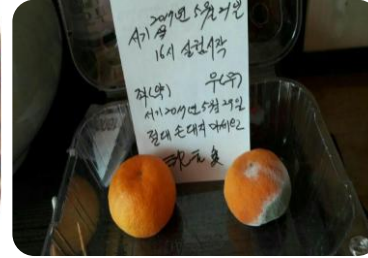 서기 2017년 5월 29일
16시 실험시작
좌(약) 우(우)
서기 2017년 5월 29일
절대 손대지 마세요